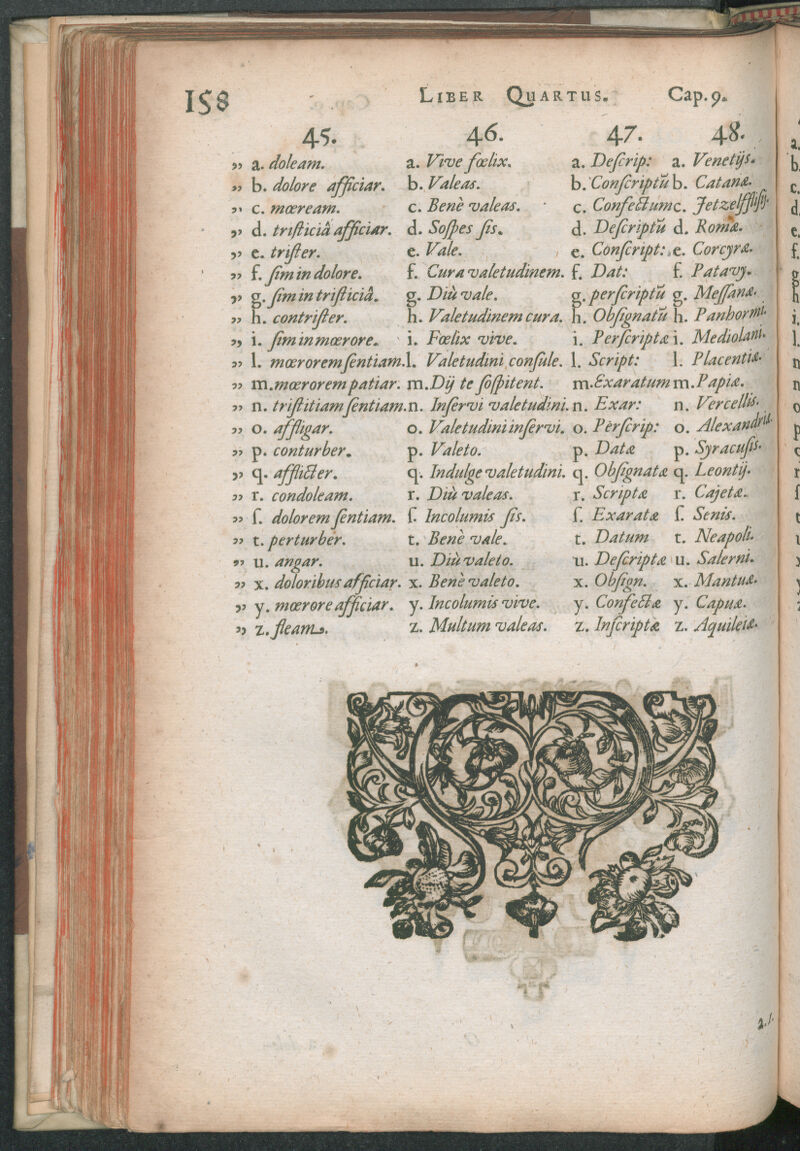 158 LIBER QUARTUS. Cap. 9.
45. 46. 47. 48.
„ a. doleam. a. Vive fœlix. a. Deſcrip: a. Venetijs.
„ b. dolore afficiar. b. Valeas. b. Conſcriptū b. Catanæ.
„ c. mœream. c. Benè valeas. c. Confectum c.
„ d. triſticiâ afficiar. d. Soſpes ſis. d. Deſcriptū d. Romæ.
„ e. triſter. e. Vale. e. Conſcript: e. Corcyræ.
„ f. ſim in dolore. f. Cura valetudinem. f. Dat: f. Patavij.
„ g. ſim in triſticiâ. g. Diù vale. g. perſcriptū g. Meſſanæ.
„ h. contriſter. h. Valetudinem cura. h. Obſignatū h. Panhormi.
„ i. ſim in mœrore. i. Fœlix vive. i. Perſcriptæ i. Mediolani.
„ l. mœrorem ſentiam. l. Valetudini conſule. l. Script: l. Placentiæ.
„ m. mœrorem patiar. m. Dij te ſoſpitent. m. Exaratum m. Papiæ.
„ n. triſtitiam ſentiam. n. Inſervi valetudini. n. Exar: n. Vercellis.
„ o. affligar. o. Valetudini inſervi. o. Pèrſcrip: o. Alexandriæ.
„ p. conturber. p. Valeto. p. Datæ p. Syracuſis.
„ q. afflicter. q. Indulge valetudini. q. Obſignatæ q. Leontij.
„ r. condoleam. r. Diù valeas. r. Scriptæ r. Cajetæ.
„ ſ. dolorem ſentiam. ſ. Incolumis ſis. ſ. Exaratæ ſ. Senis.
„ t. perturber. t. Benè vale. t. Datum t. Neapoli.
„ u. angar. u. Diù valeto. u. Deſcriptæ u. Salerni.
„ x. doloribus afficiar. x. Benè valeto. x. Obſign. x. Mantuæ.
„ y. mœrore afficiar. y. Incolumis vive. y. Confectæ y. Capuæ.
„ z. fleam. z. Multum valeas. z. Inſcriptæ z. Aquileiæ.